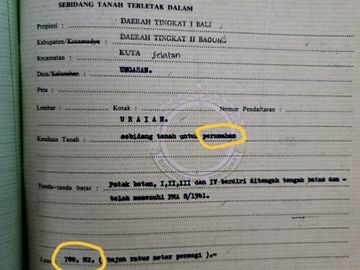 SEBIDANG TANAH TERLETAK DALAM
Propinsi : DAERAH TINGKAT I BALI
Kabupaten/Kotamadya : DAERAH TINGKAT II BADUNG
Kecamatan : KUTA Selatan
Desa/Kelurahan : UNGASAN.
Peta :
Lembar : Kotak : Nomor Pendaftaran :
URAIAN.
Keadaan Tanah : sebidang tanah untuk perumahan
Tanda-tanda batas : Patok beton, I,II,III dan IV berdiri ditengah tengah batas dan
telah memenuhi PMA 8/1961.
Luas : 700, M2, ( tujuh ratus meter persegi ).-